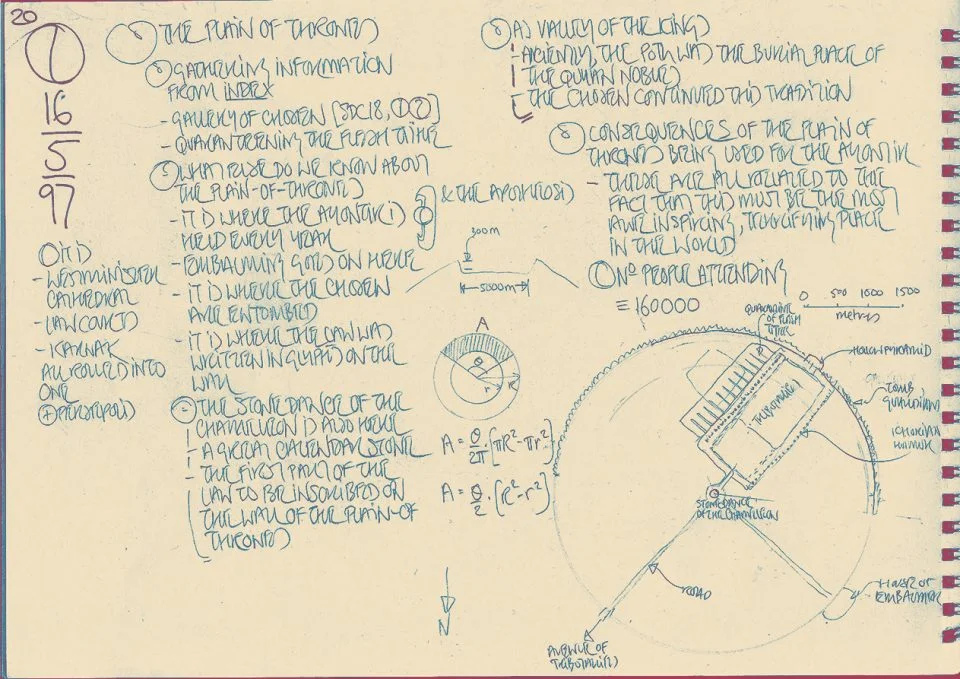 20
1
16
5
97
OR IT IS
- WESTMINISTER
CATHEDRAL
- LAW COURTS
- KARNAK
ALL ROLLED INTO
ONE
+ PERSEPOLIS
THE PLAIN OF THRONES
GATHERING INFORMATION
FROM INDEX
- GALLERY OF CHOSEN [SDC18, 1 2]
- QUARANTEENING THE FLESH TITHE
WHAT ELSE DO WE KNOW ABOUT
THE PLAIN-OF-THRONES
- IT IS WHERE THE AYONTIR IS
HELD EVERY YEAR
& THE APOTHEOSIS
- EMBALMING GOES ON HERE
- IT IS WHERE THE CHOSEN
ARE ENTOMBED
- IT IS WHERE THE LAW WAS
WRITTEN IN GLYPHS ON THE
WALL
THE STONE DANCE OF THE
CHAMELEON IS ALSO HERE
- A GREAT CALENDAR STONE
- THE FIRST PART OF THE
LAW TO BE INSCRIBED ON
THE WALL OF THE PLAIN-OF
THRONES
A) VALLEY OF THE KINGS
- ANCIENTLY, THE POTH WAS THE BURIAL PLACE OF
THE QUYAN NOBLES
- THE CHOSEN CONTINUED THIS TRADITION
CONSEQUENCES OF THE PLAIN OF
THRONES BEING USED FOR THE AYONTIR
- THESE ARE ALL RELATED TO THE
FACT THAT THIS MUST BE THE MOST
AWE INSPIRING, TERRIFYING PLACE
IN THE WORLD
1 Nº PEOPLE ATTENDING
≡ 160000
300m
5000m
A
θ
r
R
A = θ/2π · (πR² - πr²)
A = θ/2 · (R² - r²)
N
0 500 1000 1500
metres
QUARANTINE
OF FLESH
TITHE
HOLLOW PYRAMID
TOMB
GUARDIANS
TRIBUTARIES
STONE DANCE
OF THE CHAMELEON
ROAD
HOUSE OF
EMBALMERS
AVENUE OF
TRIBUTARIES